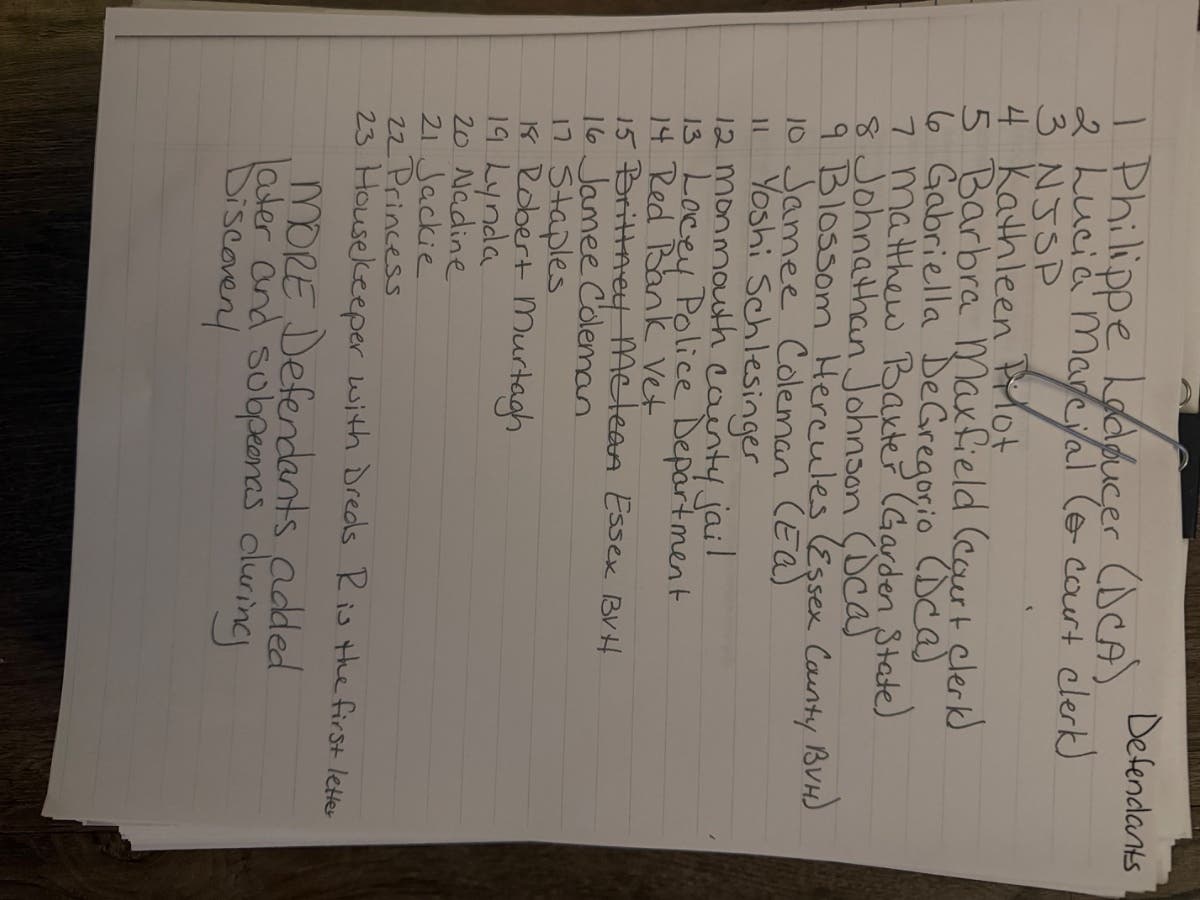 Defendants
1 Philippe Ladducer (DCA)
2 Lucia Marcial (court clerk)
3 NJSP
4 Kathleen
5 Barbra Maxfield (court clerk)
6 Gabriella DeGregorio (DCA)
7 Matthew Baxter (Garden State)
8 Johnathan Johnson (DCA)
9 Blossom Hercules (Essex County BVH)
10 Jamee Coleman (Ea)
11 Yoshi Schlesinger
12 Monmouth county jail
13 Lacey Police Department
14 Red Bank Vet
15 Brittney Mclean Essex BVH
16 Jamee Coleman
17 Staples
18 Robert Murtagh
19 Lynda
20 Nadine
21 Jackie
22 Princess
23 Housekeeper with Dreds R is the first letter
MORE Defendants added
later and subpeonas during
Discovery